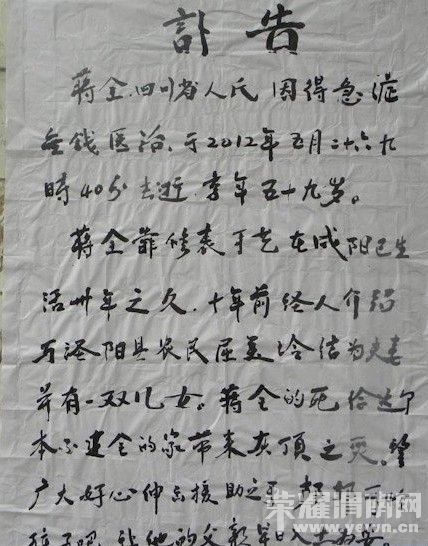 訃告
蒋全,四川省人氏,因得急症
无钱医治,于2012年五月二十六九
時40分去逝,享年五十九岁。
蒋全靠修表手艺在咸阳已生
活卅年之久,十年前经人介绍
与泾阳县农民屈美玲结为夫妻
并有一双儿女。蒋全的死给这个
本不健全的家带来灰顶之灾,望
广大好心伸出援助之手
孩子吧,让他的父亲早日入土为安。
荣耀渭南网
www.yewn.cn